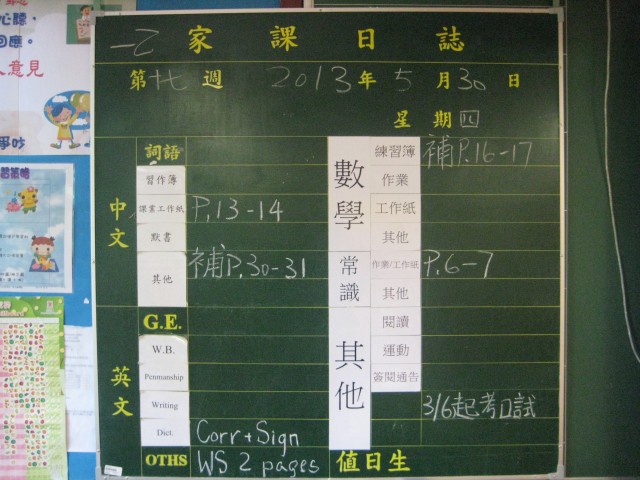 心聽、
回應。
人意見
爭吵
一乙 家課日誌
第十七週 2013年5月30日
星期四
中文
詞語
習作簿
課業工作紙 P.13-14
默書
其他 補P.30-31
英文
G.E.
W.B.
Penmanship
Writing
Dict. Corr + Sign
OTHS WS 2 pages
數學
練習簿 補P.16-17
作業
工作紙
其他
常識
作業/工作紙 P.6-7
其他
其他
閱讀
運動
簽閱通告
3/6起考口試
值日生